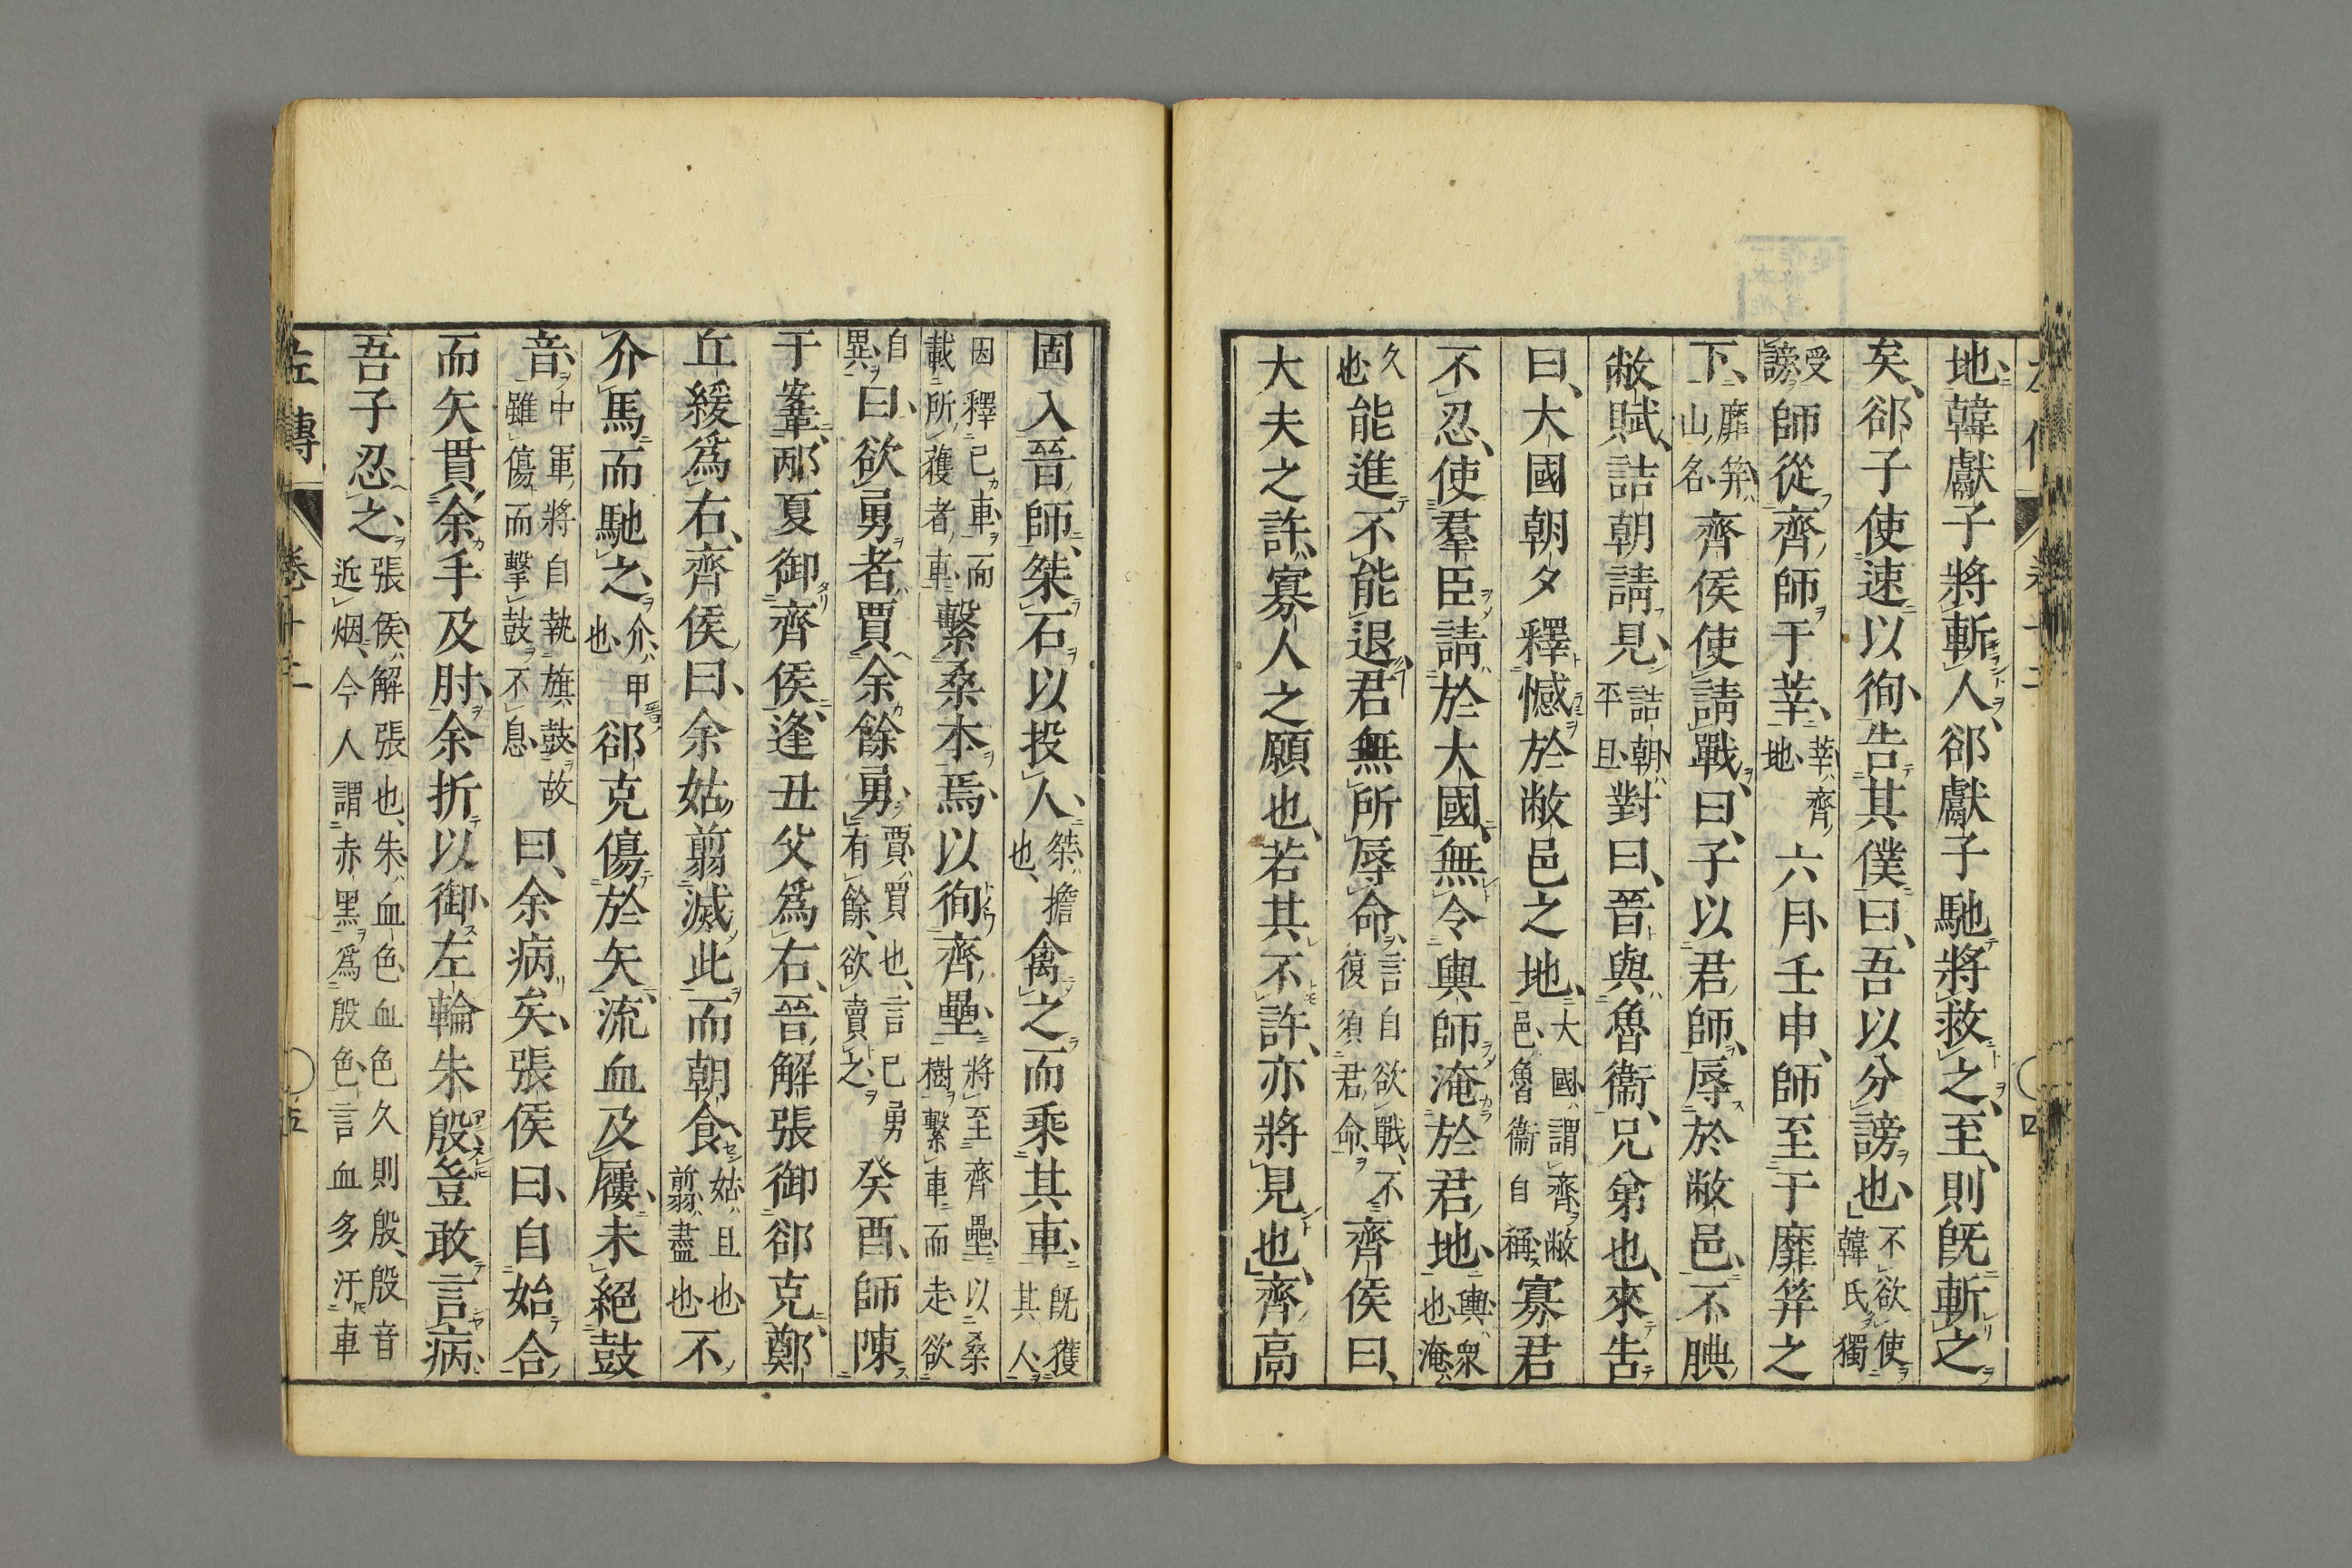 地韓獻子將斬人郤獻子馳將救之至則既斬之
矣郤子使速以徇告其僕曰吾以分謗也不欲使韓氏獨
受謗師從齊師于莘莘齊地六月壬申師至于靡筓之
下靡筓山名齊侯使請戰曰子以君師辱於敝邑不腆
敝賦詰朝請見詰朝平旦對曰晉與魯衞兄弟也來告
曰大國朝夕釋憾於敝邑之地大國謂齊敝邑魯衞自稱寡君
不忍使羣臣請於大國無令輿師淹於君地輿衆也淹
久也能進不能退君無所辱命言自欲戰不復須君命齊侯曰
大夫之許寡人之願也若其不許亦將見也齊高
固入晉師桀石以投人桀擔也禽之而乘其車既獲其人
因釋己車而載所獲者車繫桑本焉以徇齊壘將至齊壘以桑樹繫車而走欲
自異曰欲勇者賈余餘勇賈買也言己勇有餘欲賣之癸酉師陳
于鞌邴夏御齊侯逢丑父爲右晉解張御郤克鄭
丘緩爲右齊侯曰余姑翦滅此而朝食姑且也翦盡也不
介馬而馳之介甲也郤克傷於矢流血及屨未絕鼓
音中軍將自執旗鼓故雖傷而擊鼓不息曰余病矣張侯曰自始合
而矢貫余手及肘余折以御左輪朱殷豈敢言病
吾子忍之張侯解張也朱血色血色久則殷殷音近烟今人謂赤黑爲殷色言血多汙車
左傳 卷十二 五